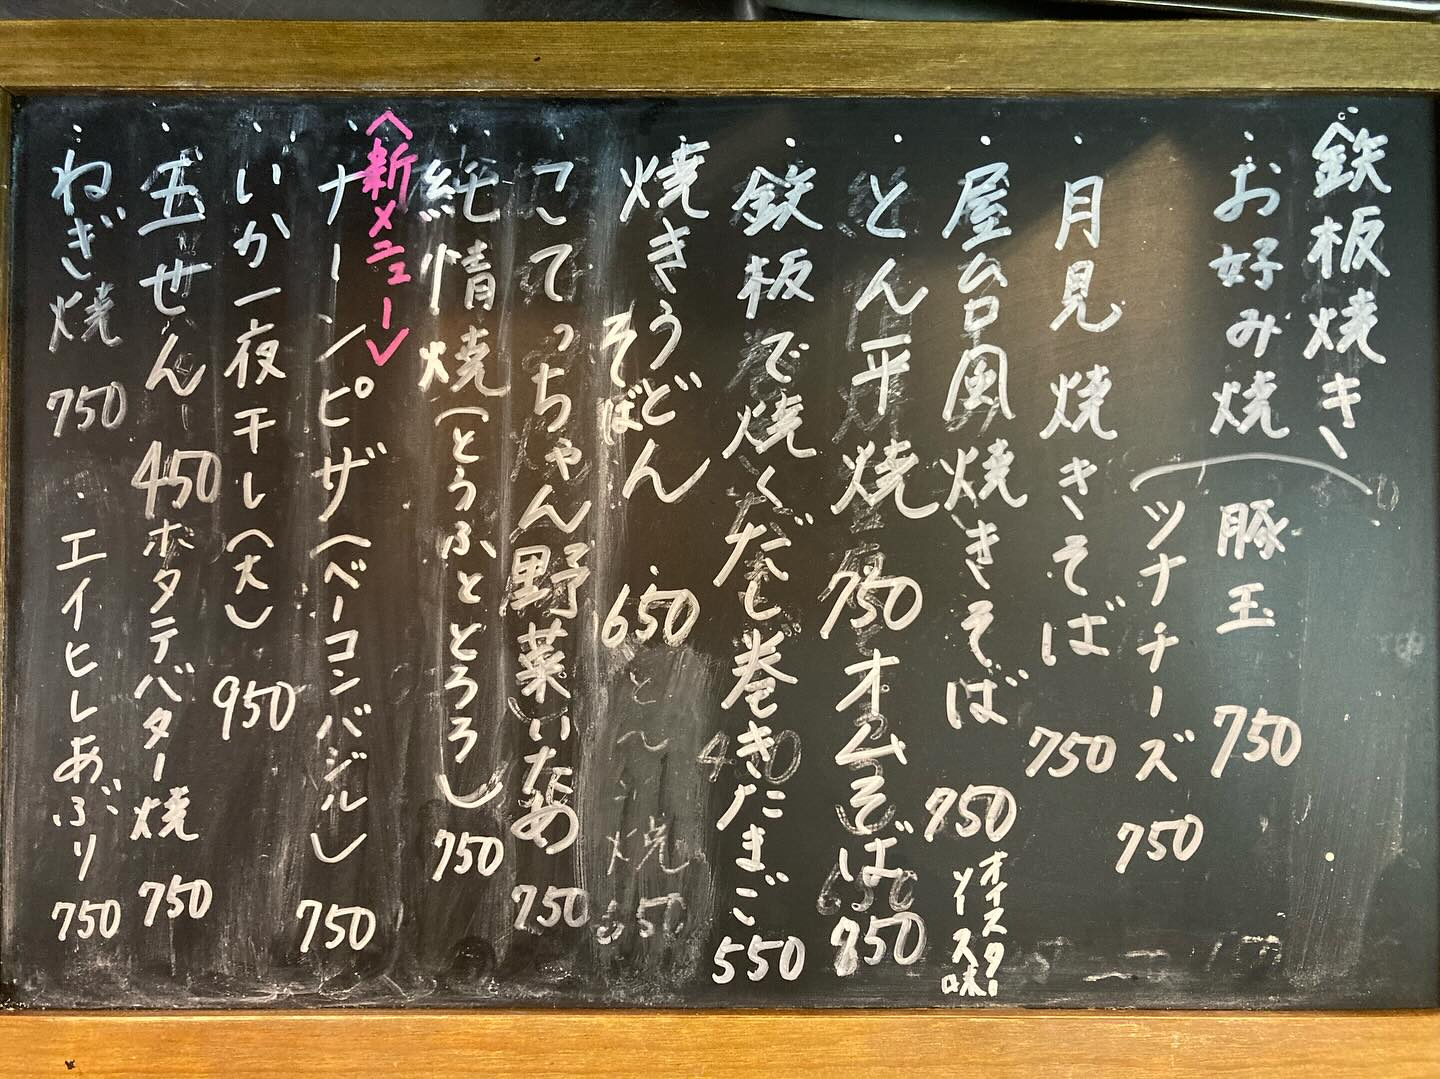 鉄板焼き
・お好み焼 豚玉 750
ツナチーズ 750
・月見焼きそば 750
・屋台風焼きそば 750 オイスターソース味
・とん平焼 750 オムそば 850
・鉄板で焼くだし巻きたまご 550
・焼きうどん そば 650
・こてっちゃん野菜いため 750
・純情焼(とうふととろろ) 750
〈新メニュー〉
・ナーンピザ(ベーコンバジル) 750
・いか一夜干し(大) 950
・玉せん 450 ホタテバター焼 750
・ねぎ焼 750 ・エイヒレあぶり 750